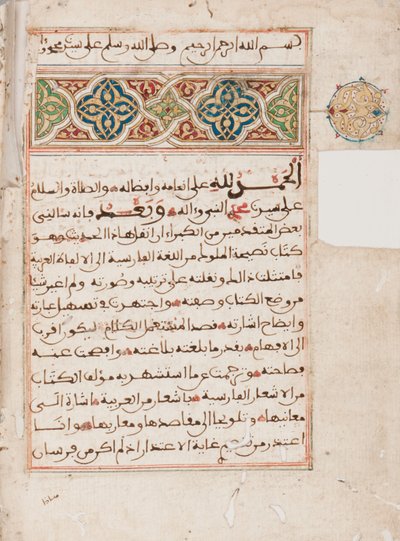 بسم الله الرحمن الرحيم وصلى الله وسلم على سيدنا محمد وآله
الحمد لله على إنعامه وإفضاله والصلاة والسلام
على سيدنا محمد النبي وءاله وبعد فإنه سألني
بعض المتقدمين من الكبراء أن أنقل هذا الحديث وهو
كتاب نصيحة الملوك من اللغة الفارسية إلى الامة العربية
فامتثلت ذلك ونقلته على ترتيبه وصورته ولم أغير شيئا
من وضع الكتاب وصفته واجتهدت في تسهيل عبارته
وإيضاح إشارته قصدا لمستعمل الكلام ليكون أقرب
إلى الافهام بقدر ما بلغته بلاغته وأفصحت عنه
فصاحته وترجمت عن ما استشهد به مؤلف الكتاب
من الاشعار الفارسية بأشعار من العربية مشاة إلى
معانيها وتلويحا إلى مقاصدها ومعاريها وأنا
أعتذر من تقصيري غاية الاعتذار إذ لم أكن من فرسان